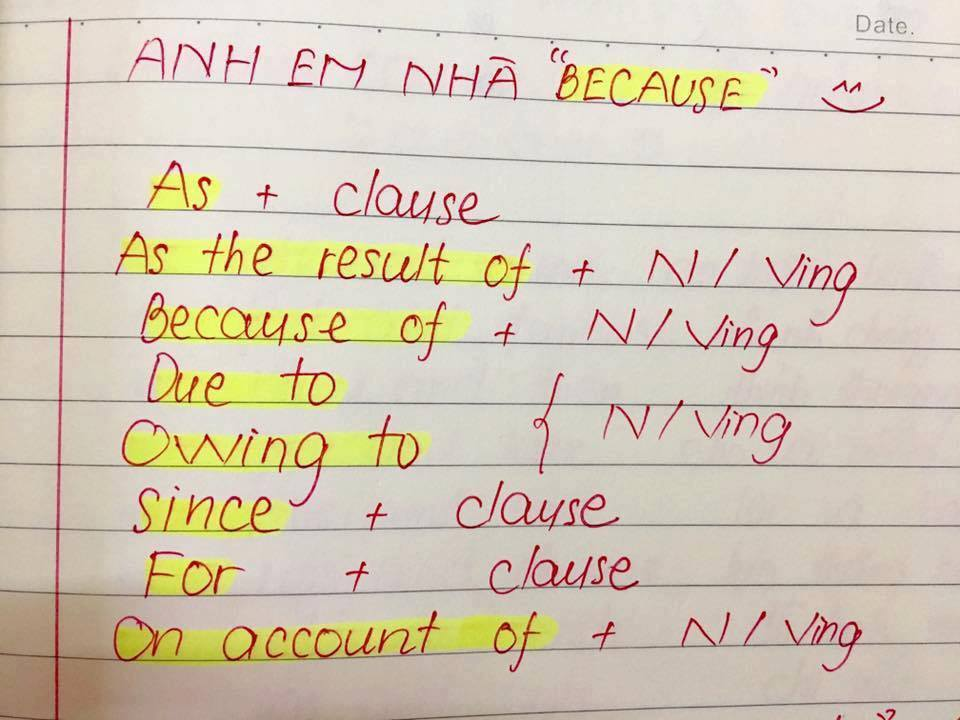 Date.
ANH EM NHÀ "BECAUSE"
As + clause
As the result of + N / Ving
Because of + N / Ving
Due to
Owing to { N / Ving
since + clause
For + clause
On account of + N / Ving